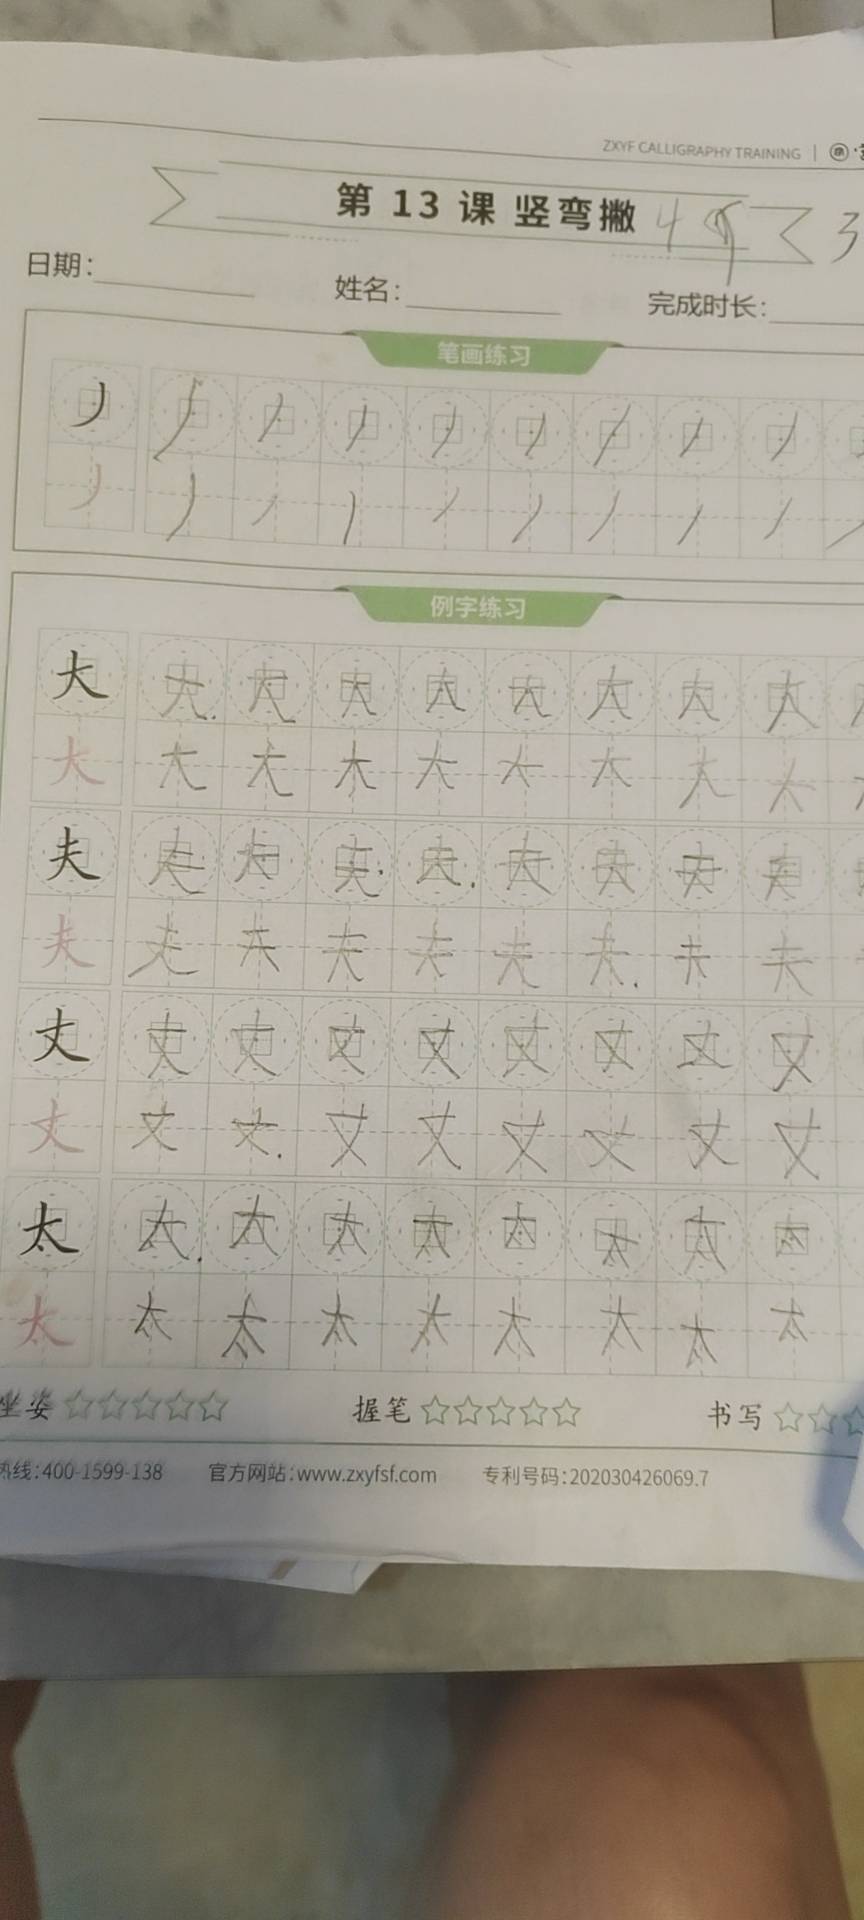 ZXYF CALLIGRAPHY TRAINING
第 13 课 竖弯撇
日期： 姓名： 完成时长：
笔画练习
例字练习
大 大 大 大 大 大 大 大 大
大 大 大 大 大 大 大 大 大
夫 夫 夫 夫 夫 夫 夫 夫 夫
夫 夫 夫 夫 夫 夫 夫 夫 夫
丈 丈 丈 丈 丈 丈 丈 丈 丈
丈 丈 丈 丈 丈 丈 丈 丈 丈
太 太 太 太 太 太 太 太 太
太 太 太 太 太 太 太 太 太
坐姿 ☆☆☆☆☆ 握笔 ☆☆☆☆☆ 书写 ☆☆☆
热线：400-1599-138 官方网站：www.zxyfsf.com 专利号码：202030426069.7